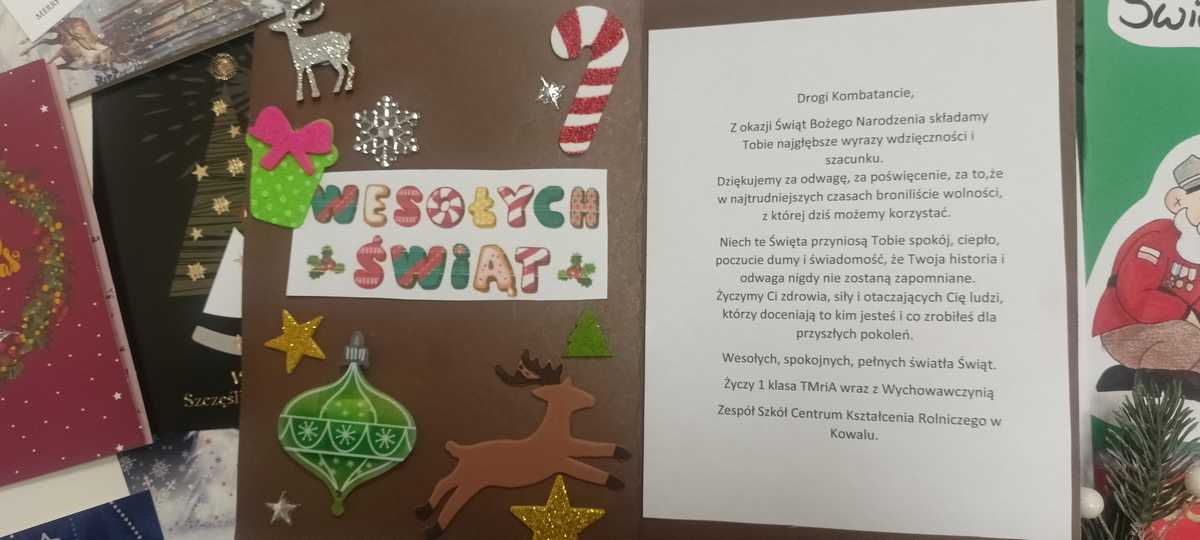 MERRY
WESOŁYCH
ŚWIĄT
Drogi Kombatancie,
Z okazji Świąt Bożego Narodzenia składamy
Tobie najgłębsze wyrazy wdzięczności i
szacunku.
Dziękujemy za odwagę, za poświęcenie, za to,że
w najtrudniejszych czasach broniliście wolności,
z której dziś możemy korzystać.
Niech te Święta przyniosą Tobie spokój, ciepło,
poczucie dumy i świadomość, że Twoja historia i
odwaga nigdy nie zostaną zapomniane.
Życzymy Ci zdrowia, siły i otaczających Cię ludzi,
którzy doceniają to kim jesteś i co zrobiłeś dla
przyszłych pokoleń.
Wesołych, spokojnych, pełnych światła Świąt.
Życzy 1 klasa TMriA wraz z Wychowawczynią
Zespół Szkół Centrum Kształcenia Rolniczego w
Kowalu.